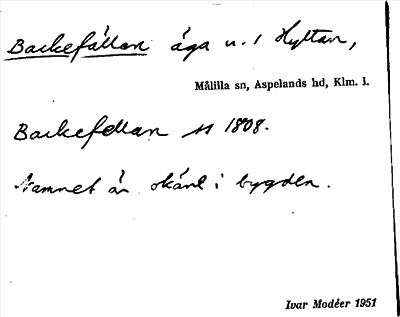 Backefällan äga u. / Hyttan,
Målilla sn, Aspelands hd, Klm. l.
Backefellan 1808.
Namnet är okänt i bygden.
Ivar Modéer 1951